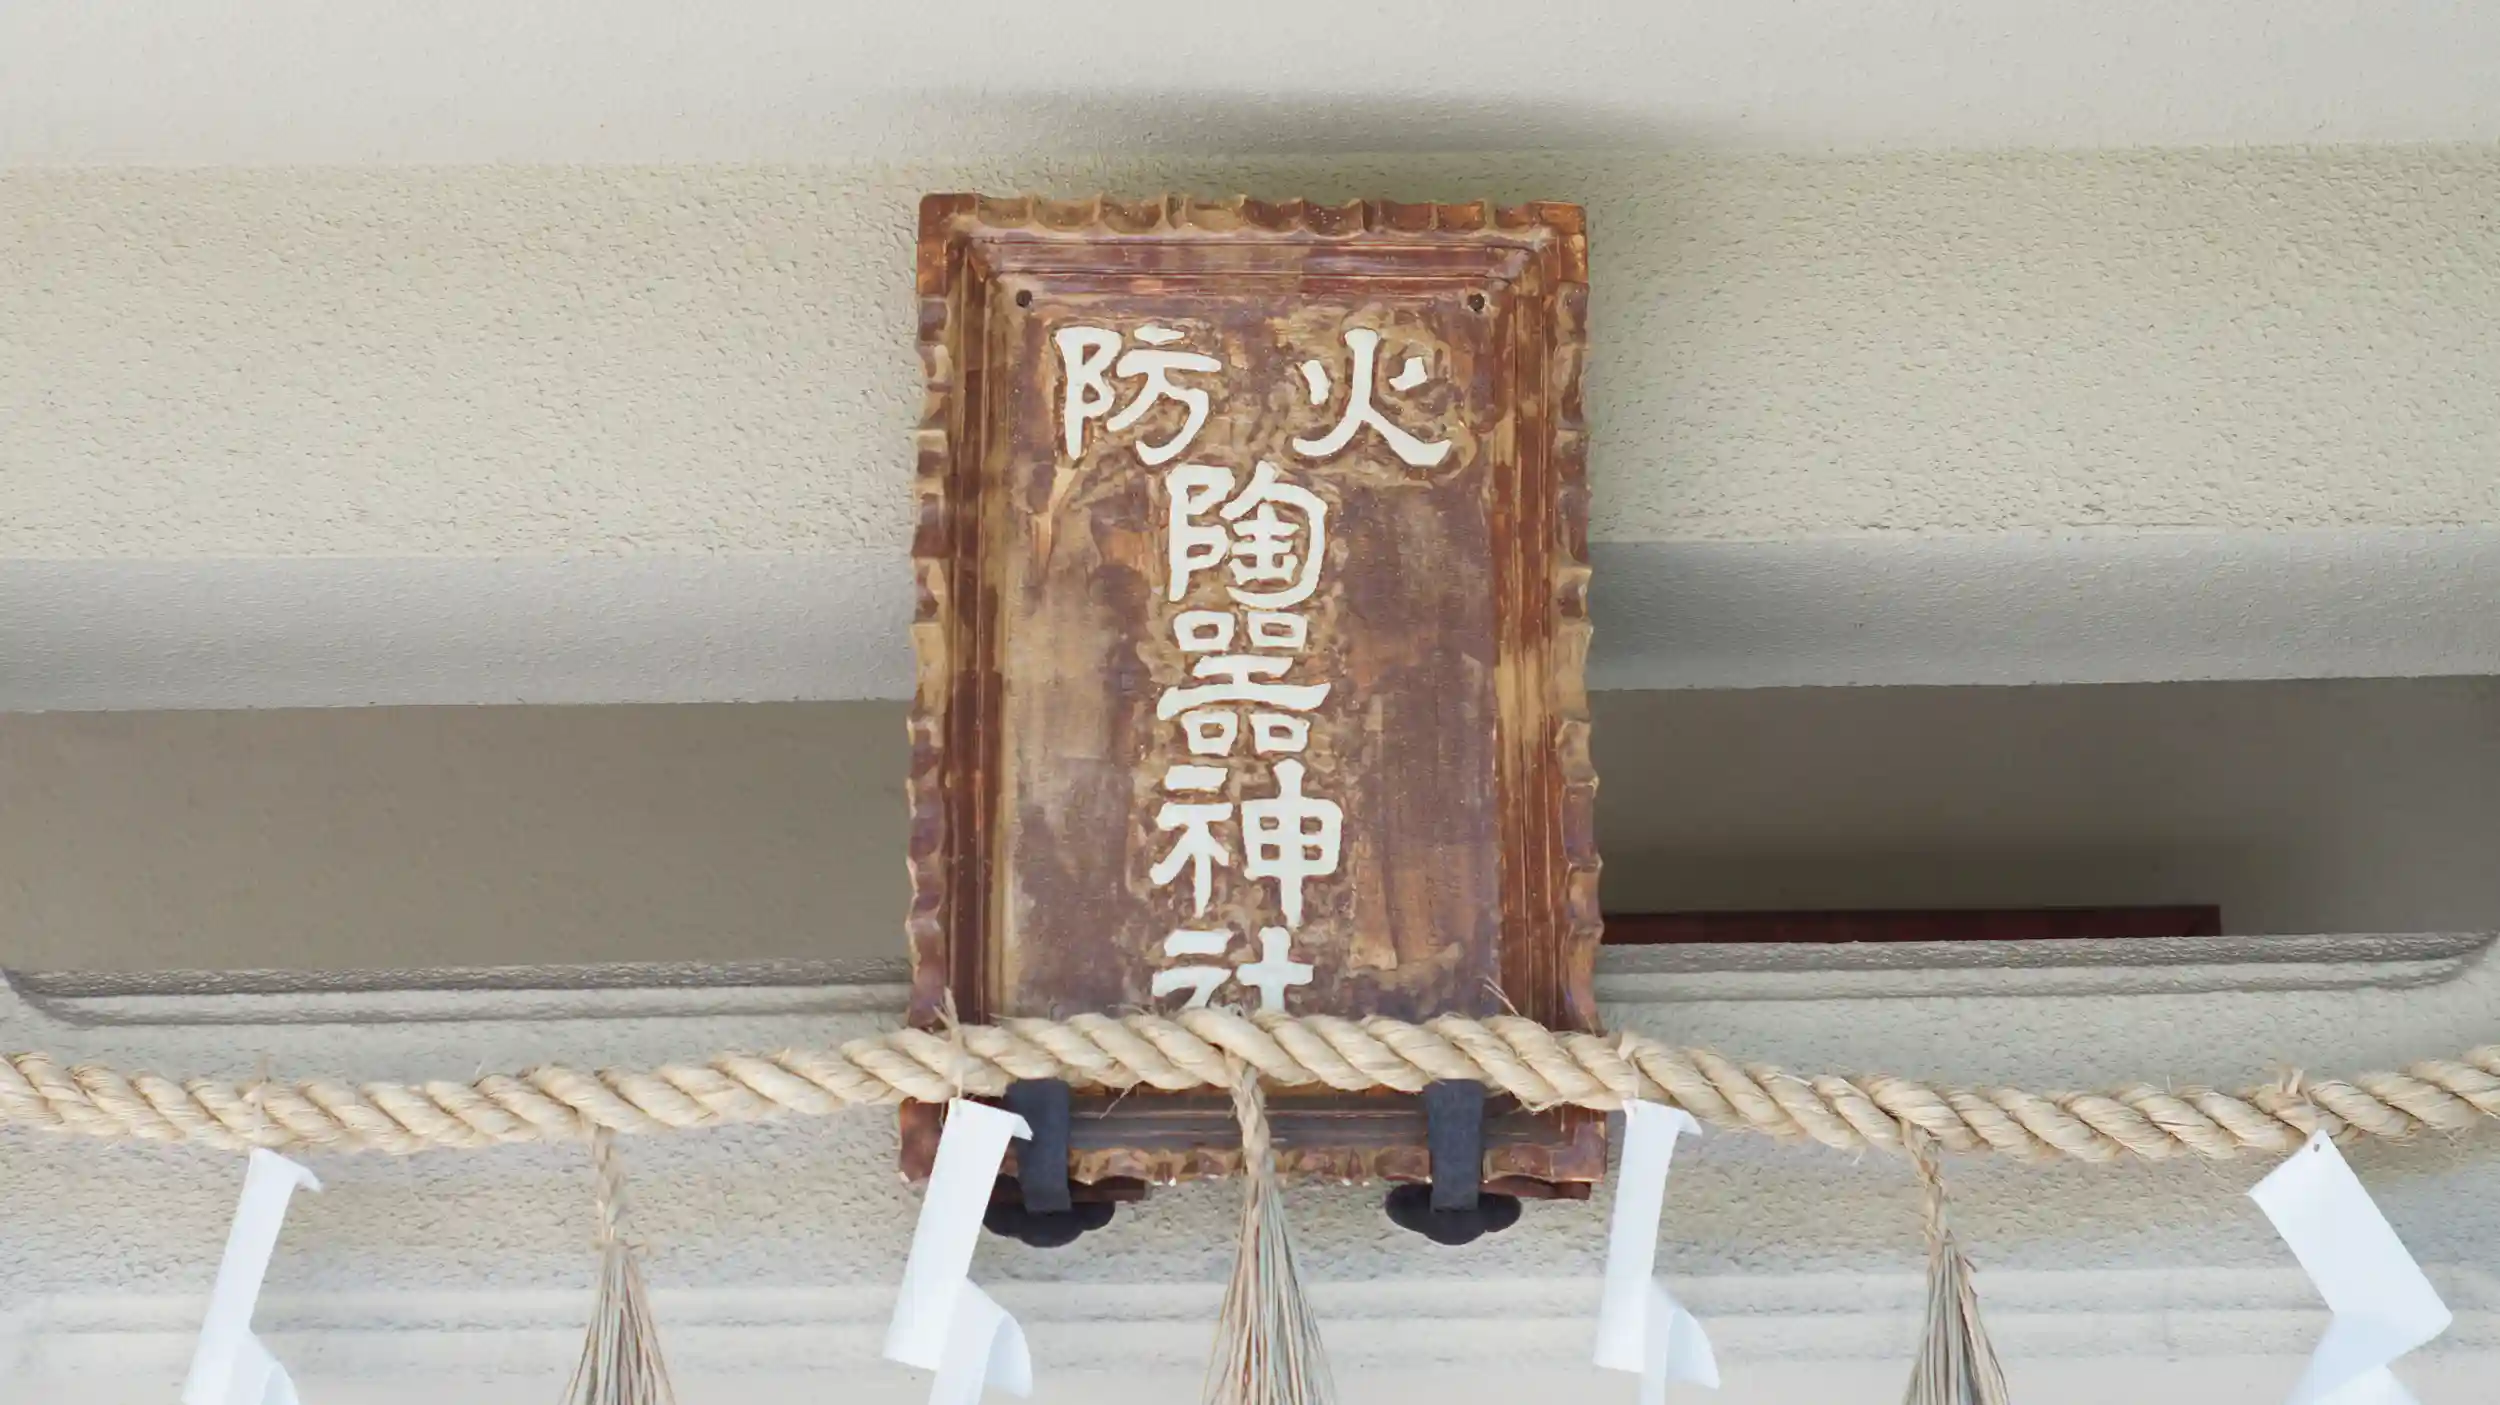 火防
陶器神社